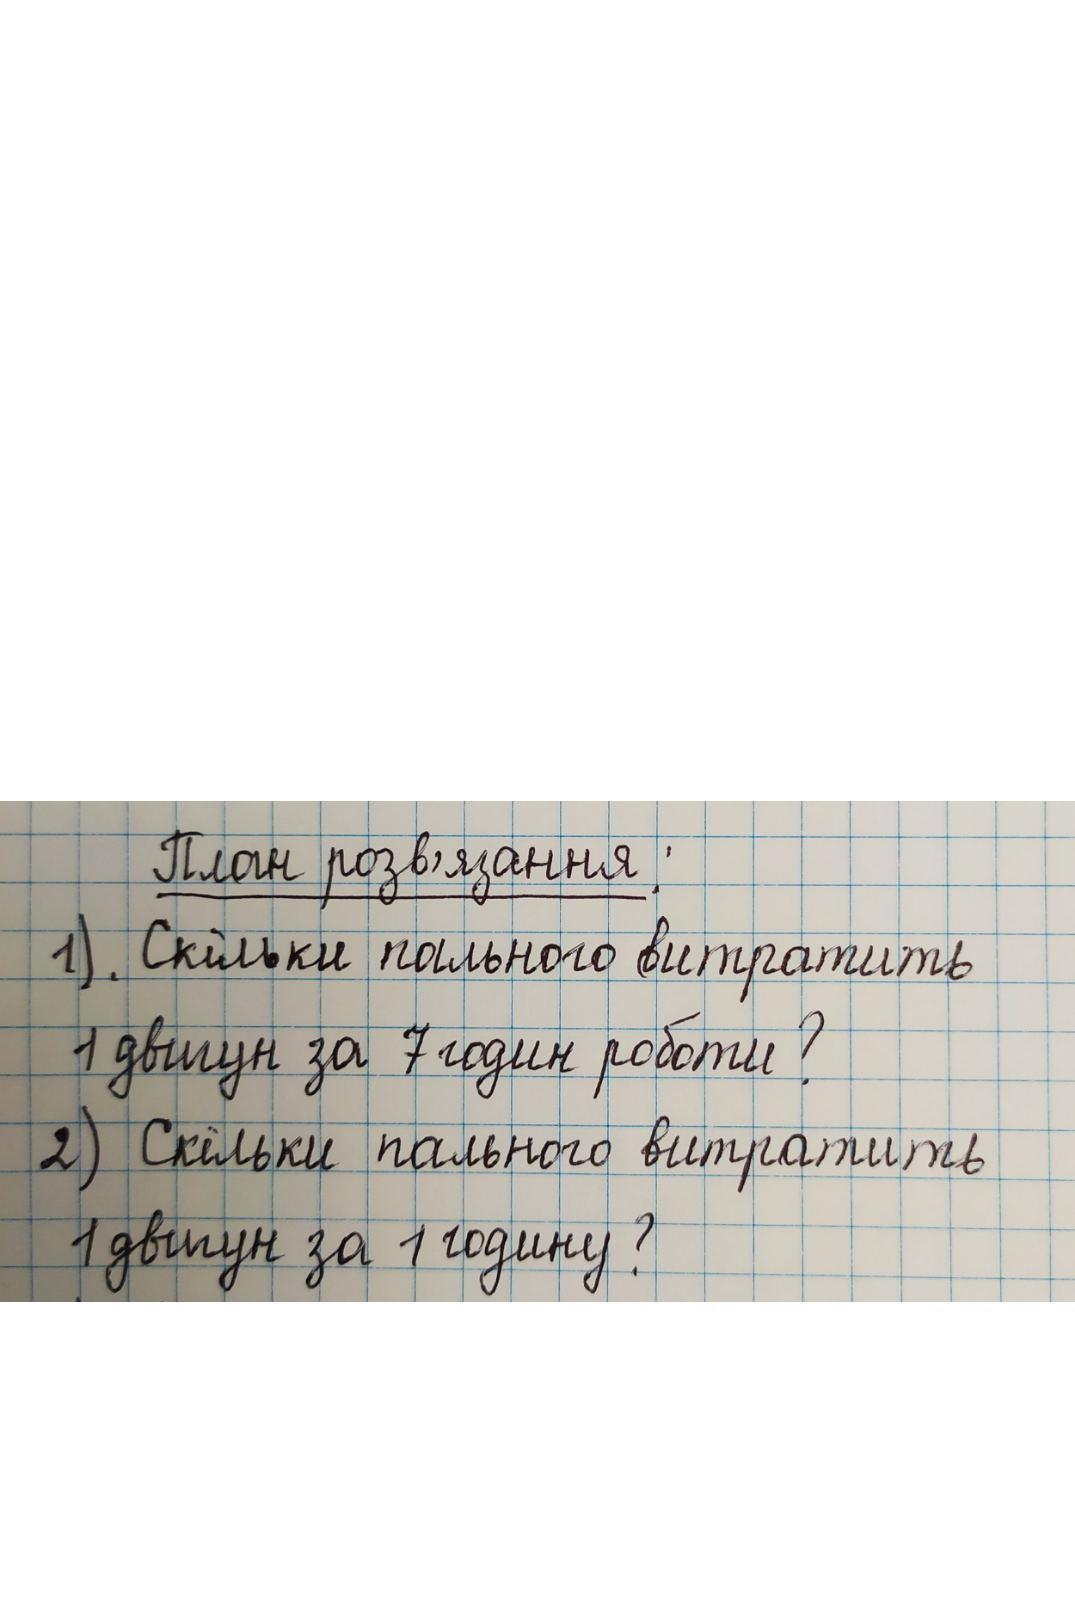 План розв'язання:
1). Скільки пального витратить
1 двигун за 7 годин роботи?
2) Скільки пального витратить
1 двигун за 1 годину?